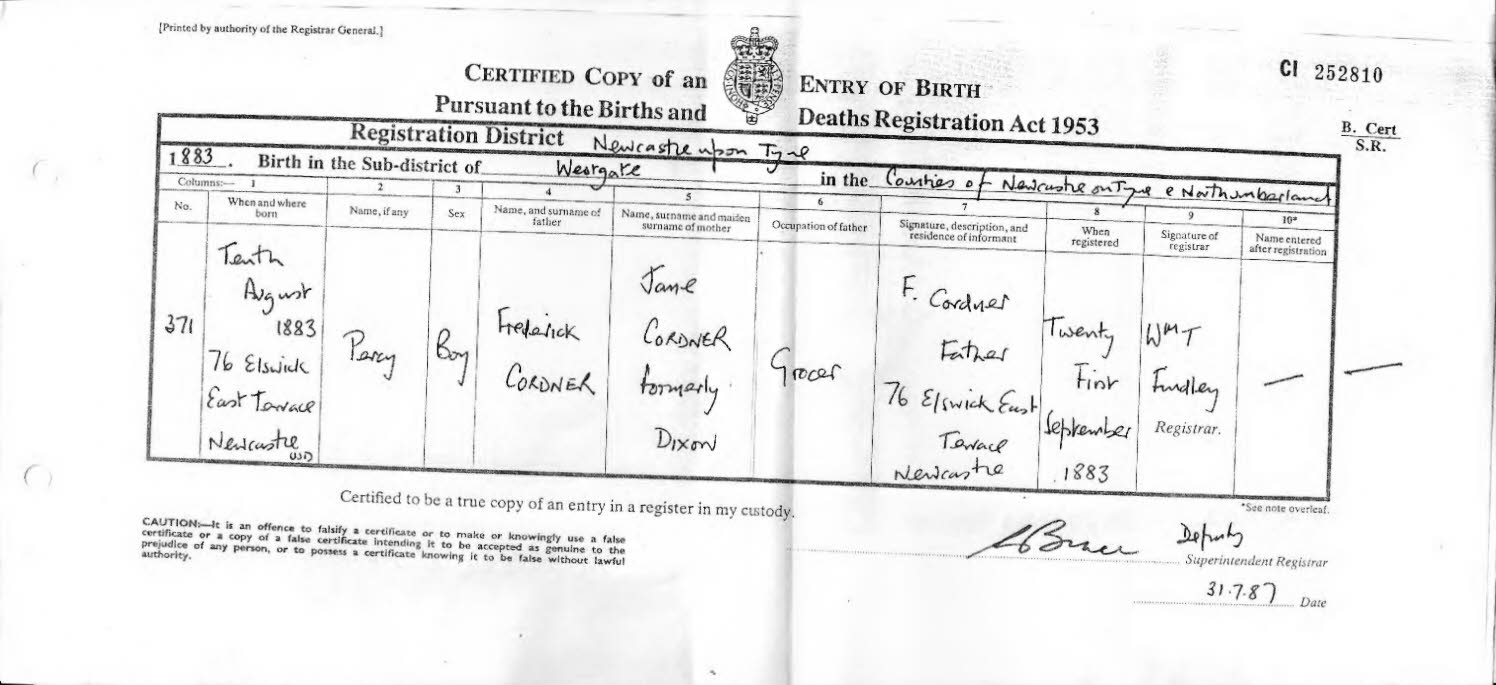 [Printed by authority of the Registrar General.]
CERTIFIED COPY of an ENTRY OF BIRTH
CI 252810
Pursuant to the Births and Deaths Registration Act 1953
B. Cert
S.R.
Registration District Newcastle upon Tyne
1883. Birth in the Sub-district of Westgate in the Counties of Newcastle on Tyne & Northumberland
Columns:— 1 2 3 4 5 6 7 8 9 10*
No.
When and where
born
Name, if any
Sex
Name, and surname of
father
Name, surname and maiden
surname of mother
Occupation of father
Signature, description, and
residence of informant
When
registered
Signature of
registrar
Name entered
after registration
371
Tenth
August
1883
76 Elswick
East Terrace
Newcastle
USD
Percy
Boy
Frederick
CORDNER
Jane
CORDNER
formerly
DIXON
Grocer
F. Cordner
Father
76 Elswick East
Terrace
Newcastle
Twenty
First
September
1883
WMT
Findley
Registrar.
—
—
Certified to be a true copy of an entry in a register in my custody.
*See note overleaf.
CAUTION:—It is an offence to falsify a certificate or to make or knowingly use a false
certificate or a copy of a false certificate intending it to be accepted as genuine to the
prejudice of any person, or to possess a certificate knowing it to be false without lawful
authority.
Deputy
Superintendent Registrar
31.7.87 Date